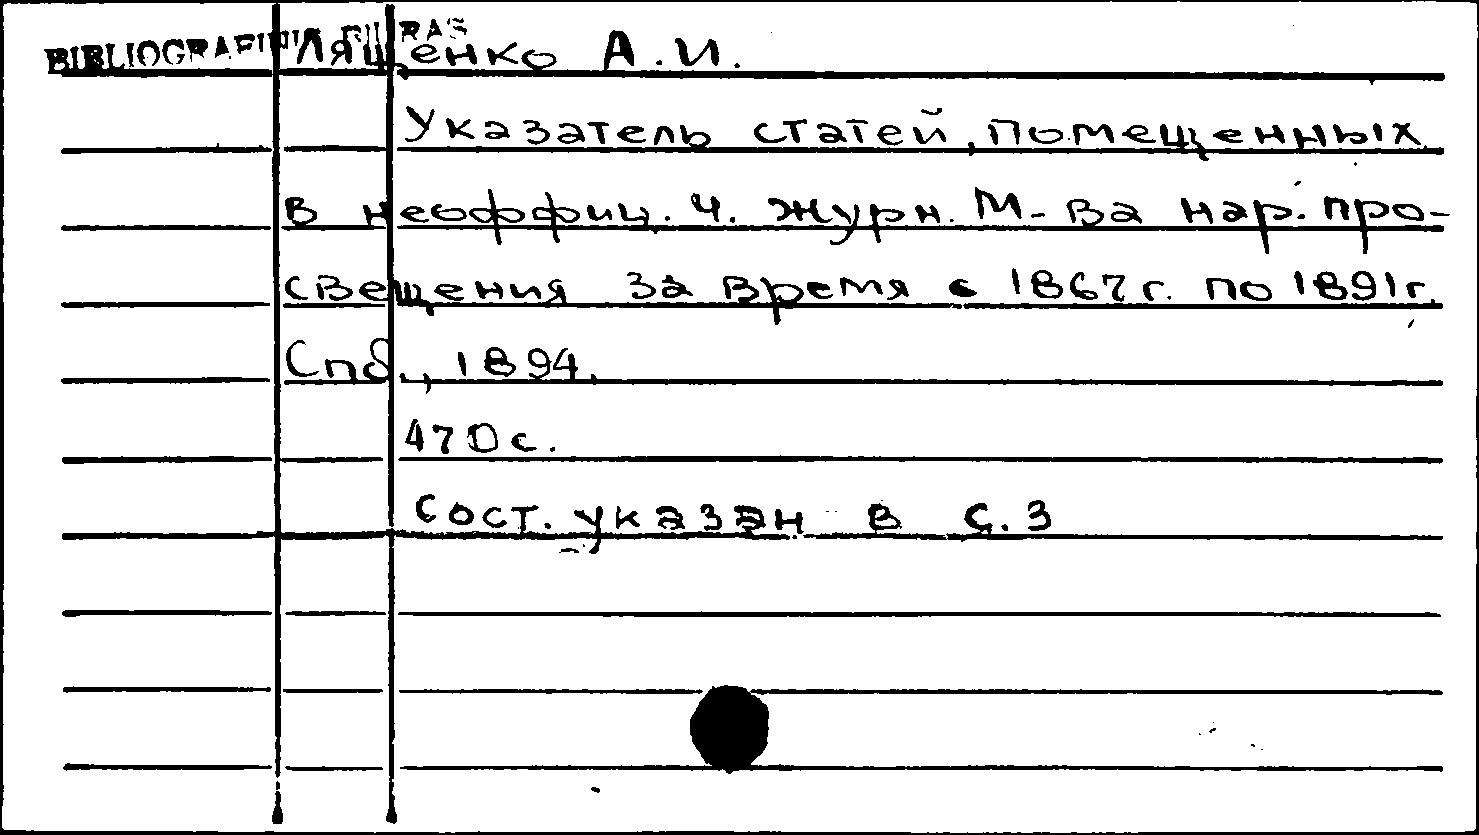 BIBLIOGRAFINIS
Лященко А.И.
Указатель статей, помещенных
в неоффиц. ч. журн. М-ва нар. про-
свещения за время с 1867г. по 1891г.
Спб., 1894.
470с.
Сост. указан в с. 3